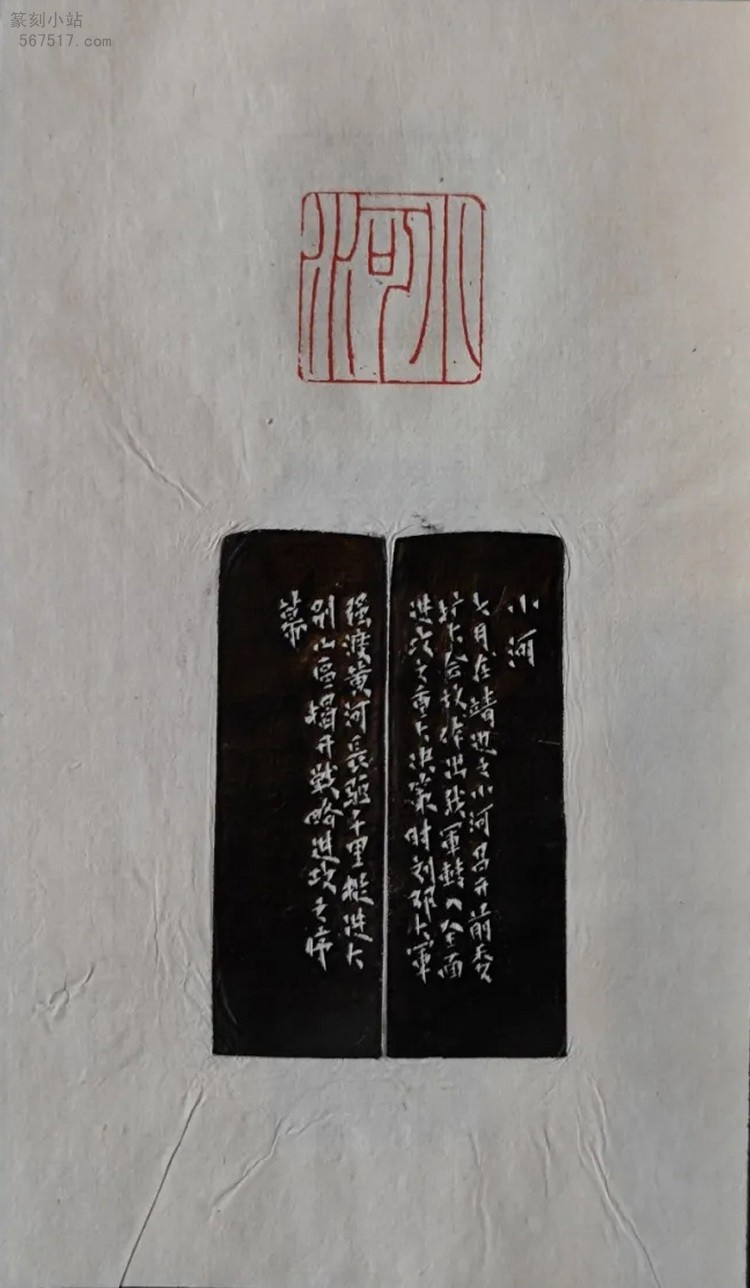 篆刻小站
567517.com
小河
小河
七月在靖边之小河召开前委
扩大会议作出我軍转入全面
进攻之重大决策时刘邓大軍
强渡黄河長驱千里挺进大
别山區揭开戦略进攻之序
幕